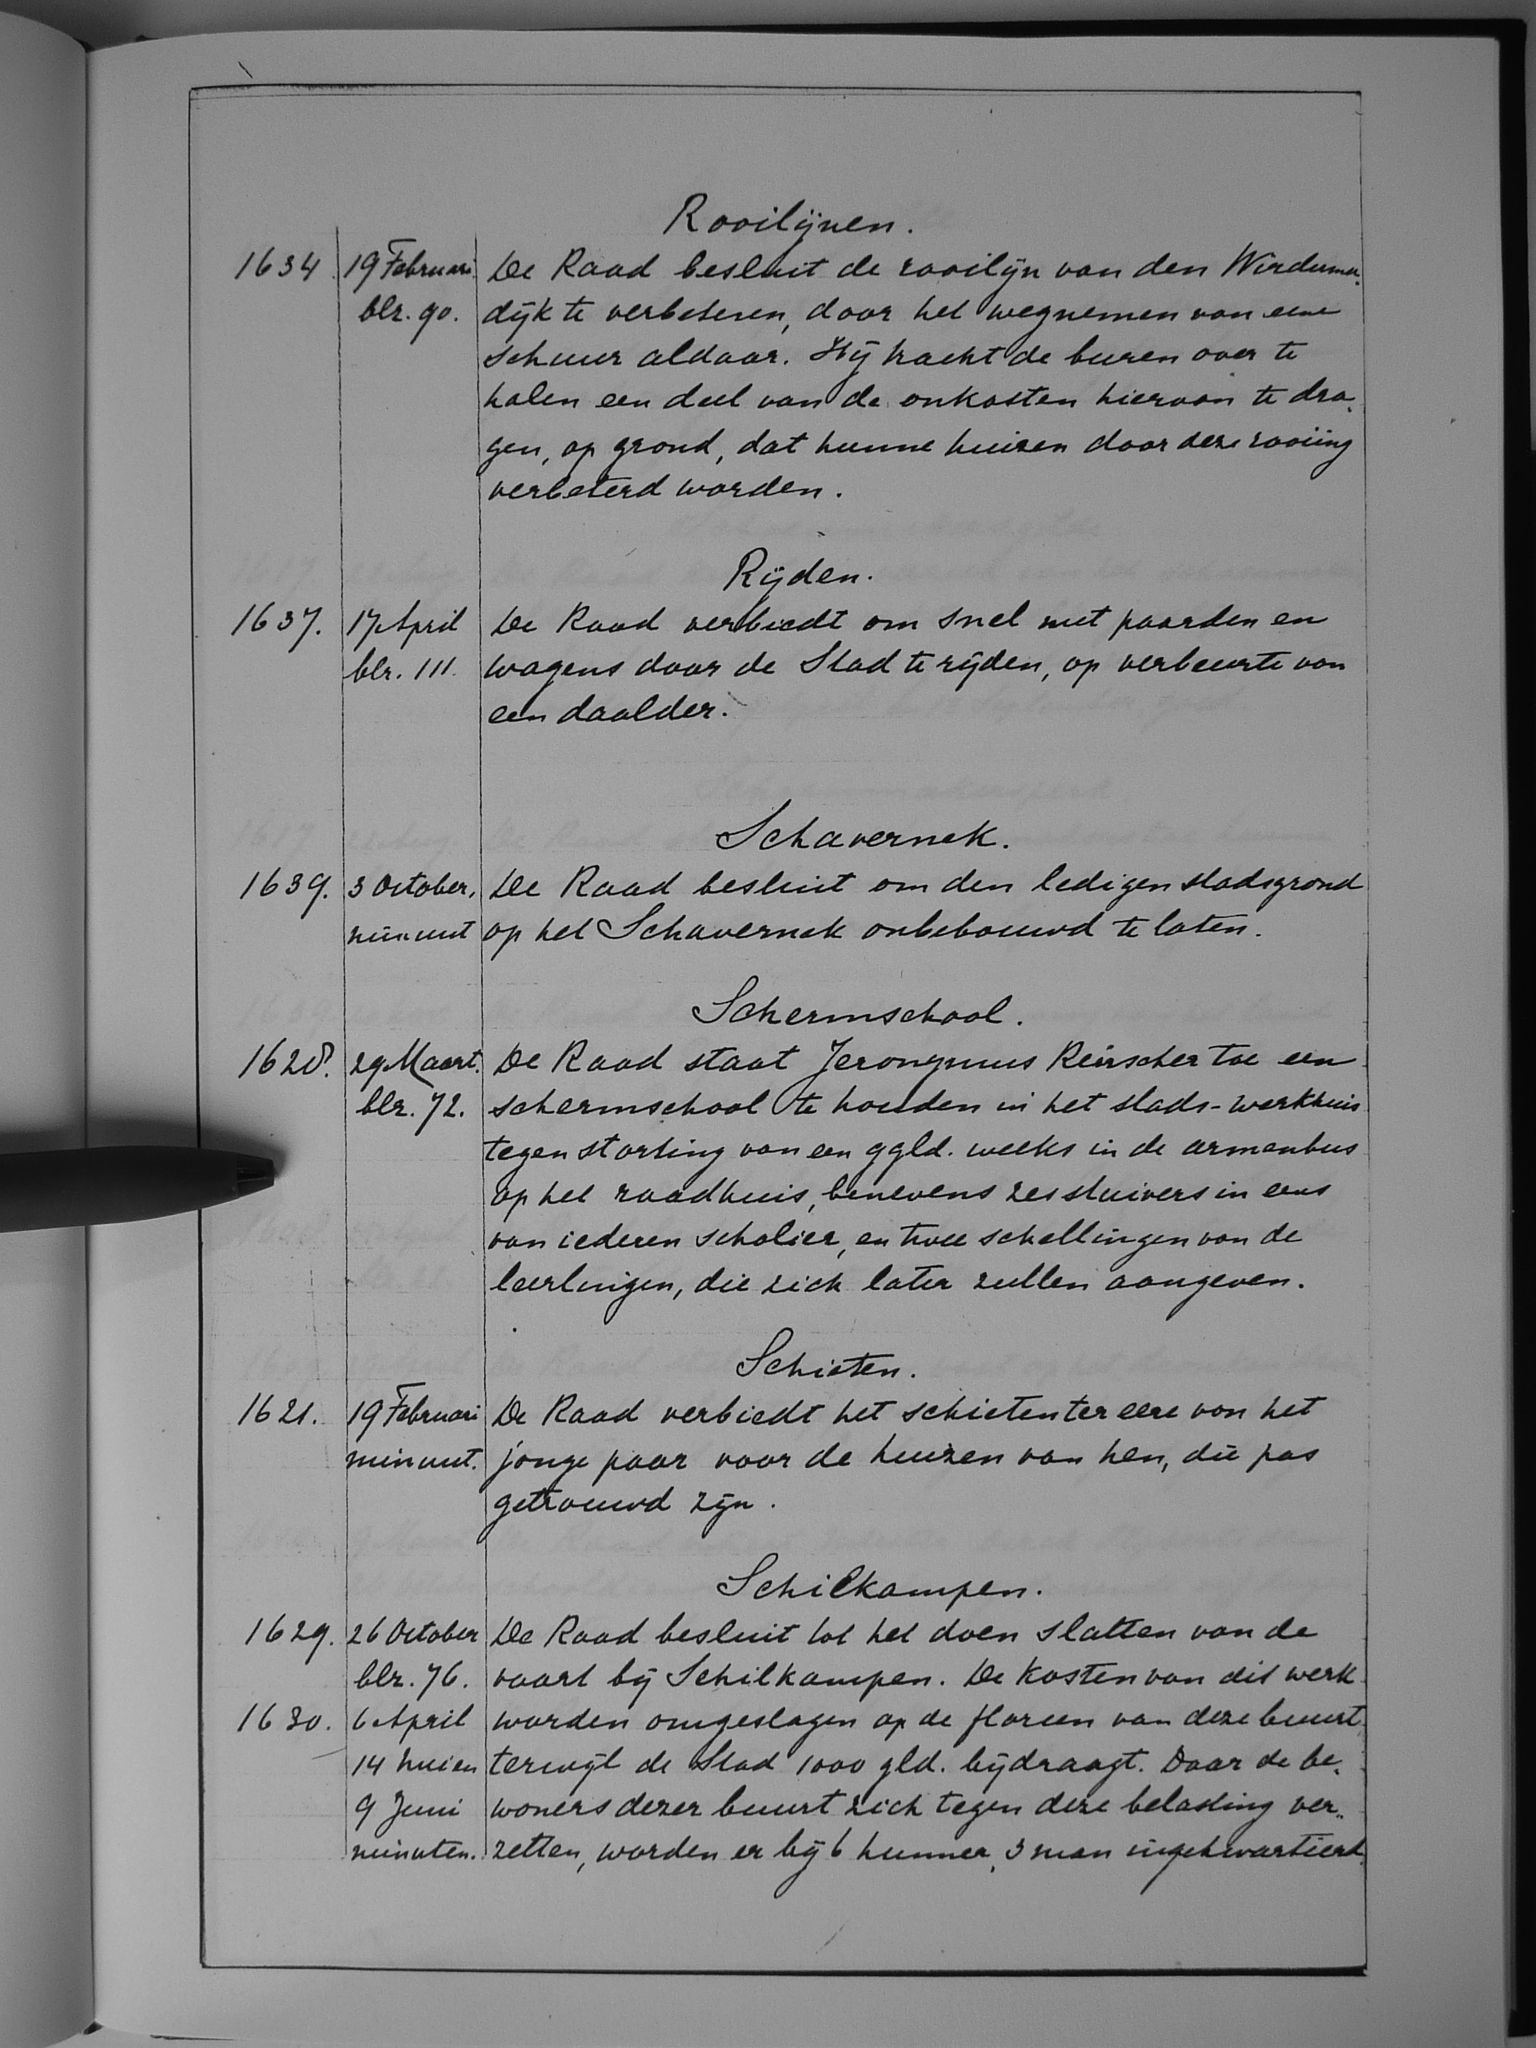 Rooilijnen.
1634. 19 Februari De Raad besluit de rooilijn van den Wirdumer-
blz. 90. dijk te verbeteren, door het wegnemen van eene
schuur aldaar. Hij tracht de buren over te
halen een deel van de onkosten hiervan te dra-
gen, op grond, dat hunne huizen door deze rooiing
verbeterd worden.
Rijden.
1637. 17 April De Raad verbiedt om snel met paarden en
blz. 111. wagens door de Stad te rijden, op verbeurte van
een daalder.
Schavernek.
1639. 3 October, De Raad besluit om den ledigen stadsgrond
minuut op het Schavernek onbebouwd te laten.
Schermschool.
1628. 29 Maart. De Raad staat Jeronymus Reinscher toe een
blz. 72. schermschool te houden in het stads-werkhuis
tegen storting van een ggld. weeks in de armenbus
op het raadhuis, benevens zes stuivers in eens
van iederen scholier, en twee schellingen van de
leerlingen, die zich later zullen aangeven.
Schieten.
1621. 19 Februari De Raad verbiedt het schieten ter eere van het
minuut. jonge paar voor de huizen van hen, die pas
getrouwd zijn.
Schilkampen.
1629. 26 October De Raad besluit tot het doen slatten van de
blz. 76. vaart bij Schilkampen. De kosten van dit werk
1630. 6 April worden omgeslagen op de floreen van deze buurt,
14 Mei en terwijl de Stad 1000 gld. bijdraagt. Daar de be-
9 Juni woners dezer buurt zich tegen deze belasting ver-
minuten. zetten, worden er bij 6 hunner, 3 man ingekwartierd.